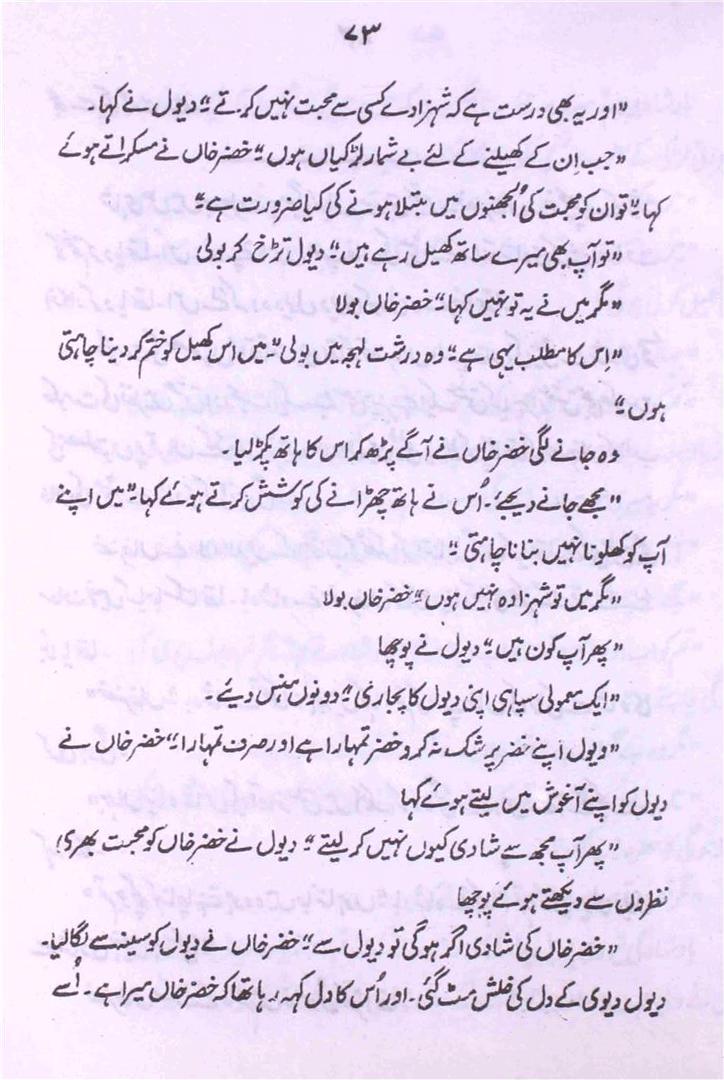 ۷۳
"اور یہ بھی درست ہے کہ شہزادے کسی سے محبت نہیں کرتے" دیول نے کہا۔
"جب اِن کے کھیلنے کے لئے بے شمار لڑکیاں ہوں" خضر خاں نے مسکراتے ہوئے
کہا "تو ان کو محبت کی اُلجھنوں میں مبتلا ہونے کی کیا ضرورت ہے"
"تو آپ بھی میرے ساتھ کھیل رہے ہیں" دیول تڑخ کر بولی
"مگر میں نے یہ تو نہیں کہا" خضر خاں بولا
"اِس کا مطلب یہی ہے" وہ درشت لہجہ میں بولی "میں اس کھیل کو ختم کر دینا چاہتی
ہوں"
وہ جانے لگی خضر خاں نے آگے بڑھ کر اس کا ہاتھ پکڑ لیا
"مجھے جانے دیجئے۔ اُس نے ہاتھ چھڑانے کی کوشش کرتے ہوئے کہا۔ "میں اپنے
آپ کو کھلونا نہیں بنانا چاہتی"
"مگر میں تو شہزادہ نہیں ہوں" خضر خاں بولا
"پھر آپ کون ہیں" دیول نے پوچھا
"ایک معمولی سپاہی اپنی دیول کا پجاری" دونوں ہنس دیئے۔
"دیول اپنے خضر پر شک نہ کرو خضر تمہارا ہے اور صرف تمہارا" خضر خاں نے
دیول کو اپنے آغوش میں لیتے ہوئے کہا
"پھر آپ مجھ سے شادی کیوں نہیں کر لیتے" دیول نے خضر خاں کو محبت بھری
نظروں سے دیکھتے ہوئے پوچھا
"خضر خاں کی شادی اگر ہوگی تو دیول سے" خضر خاں نے دیول کو سینہ سے لگا لیا۔
دیول دیوی کے دل کی خلش مٹ گئی۔ اور اُس کا دل کہہ رہا تھا کہ خضر خاں میرا ہے۔ اُسے